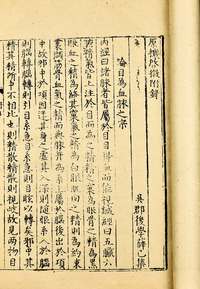 原機啟微附錄
吳郡後學薛己撰
論目為血脉之宗
內經曰諸脉者皆屬於目目得血而能視鍼經曰五臟六
腑精氣皆上注於目而為之精精之窠為眼骨之精為黑
眼血之精為絡其窠氣之精為白眼肌肉之精則為約束
裹擷筋骨血氣之精而與脉並為系上屬於腦後出於項
中故邪中於項因逢其身之虛其入深則隨眼系入於腦
則腦轉腦轉則引目系急目系急則目眩以轉矣邪中其
精其精所中不相比也則精散精散則視岐故見兩物目